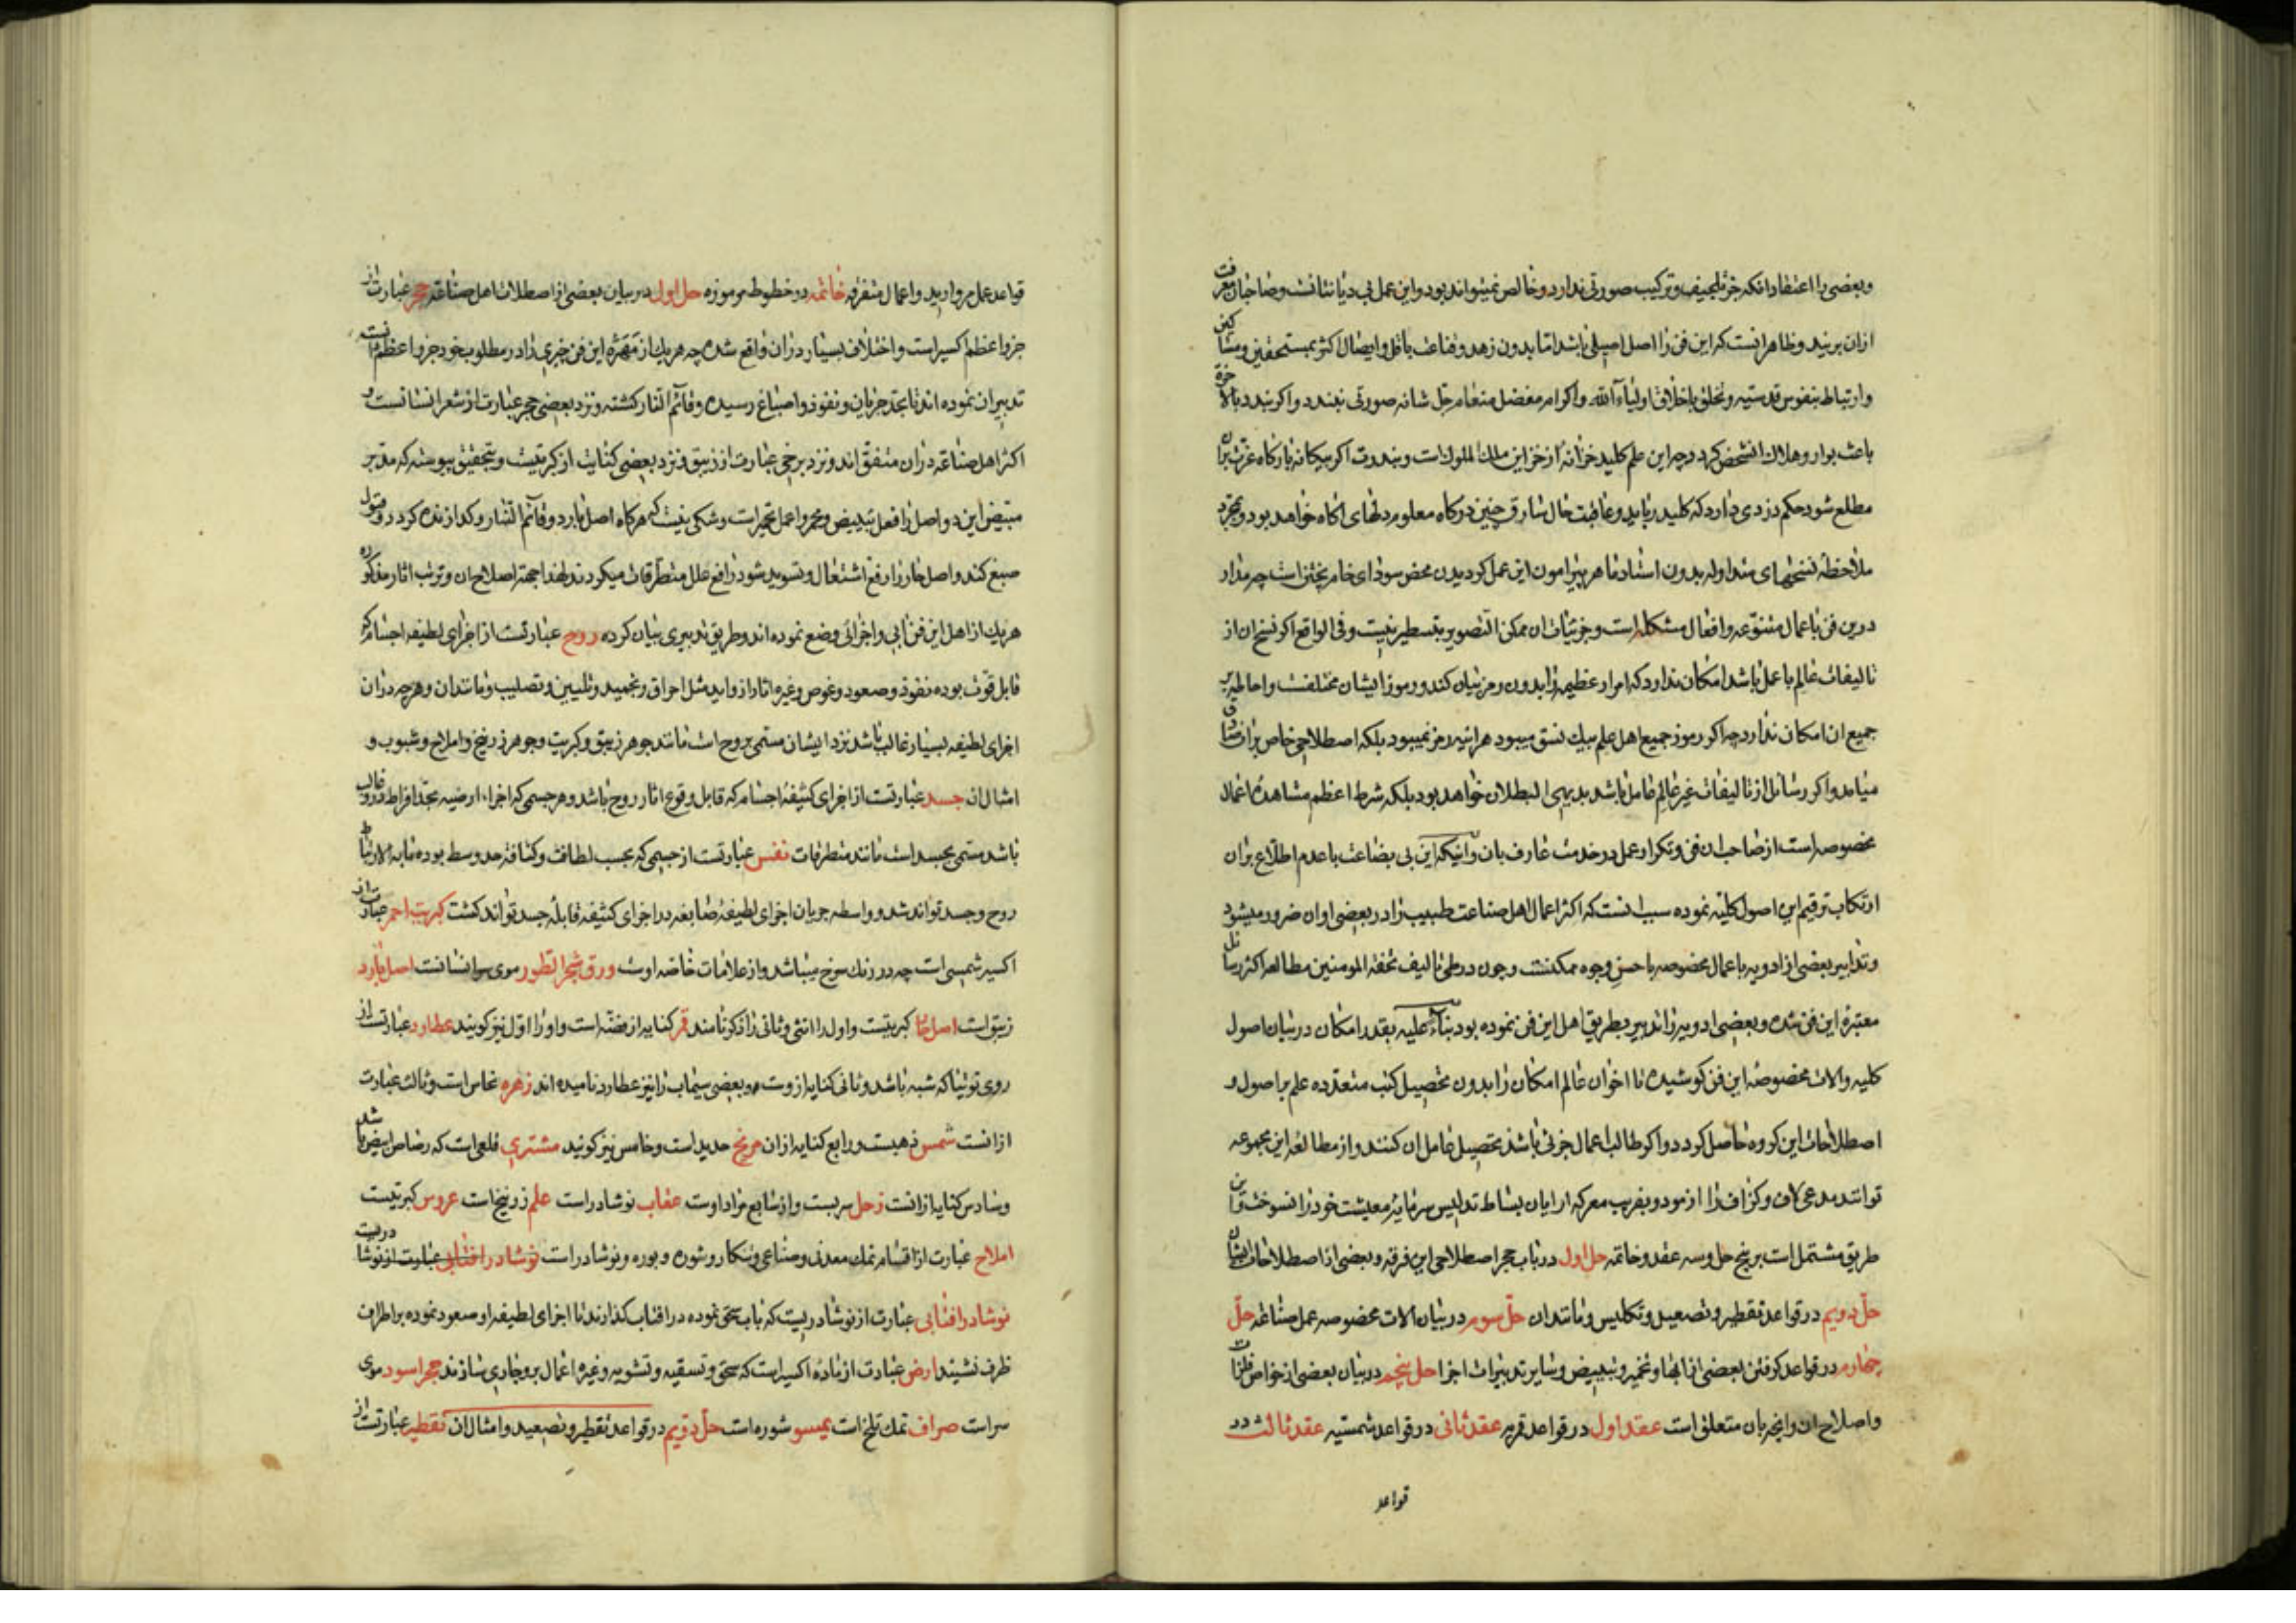 وبعضی را اعتقاد آنکه جز تلجیف وترکیب صورتی ندارد و خالص نمیتواند بود و این عمل بی دیانتانست وصاحبان معرفت
ازان بریند وظاهر اینست که این فن را اصل اصیلی باشد امّا بدون زهد وقناعت باقل وایصال اکثر بمستحقین ومساکین
وارتباط بنفوس قدسیّه وتخلق باخلاق اولیآء الله واکرام مفضل منعام جل شانه صورتی نبندد و اکر بندد بالاخرة
باعث بوار وهلاک انشخص کردد چه این علم کلید خزانه از خزاین ملک الملوک است و بندرت اکر بیکانه بارکاه عزت بران
مطلع شود حکم دزدی دارد که کلید رباید وعاقبت حال سارق چنین درکاه معلوم دلهای اکاه خواهد بود وبمجرد
ملاحظه نسخهای متداوله بدون استاد ماهر پیرامون این عمل کردیدن محض سودای خام پختن است چه مدار
درین فن باعمال متنوعه وافعال مشکله است وجزئیات ان ممکن التصویر بتسطیر نیست وفی الواقع اکر نسخ ان از
تالیفات عالم باعمل باشد امکان ندارد که امرار عظیمه را بدون رمز بیان کند ورموز ایشان مختلفست واحاطه بر
جمیع ان امکان ندارد چه اکر رموز جمیع اهل علم بیک نسق میبود هرآینه رمز نمیبود بلکه اصطلاحی خاص بران صادق
میامد واکر رسائل از تالیفات غیر عالم عامل باشد بدیهی البطلان خواهد بود بلکه شرط اعظم مشاهده اعمال
مخصوصه است از صاحبان فن وتکرار عمل در خدمت عارف بان وانیکه این بی بضاعت باعدم اطلاع بران
ارتکاب ترقیم این اصول کلیّه نموده سبب انست که اکثر اعمال اهل صناعت طبیب را در بعضی اوان ضرور میشود
وتدابیر بعضی از ادویه باعمال مخصوصه باحسن وجوه ممکنست وچون در طی تالیف تحفة المومنین مطالعه اکثر رسائل
معتبرۀ این فن شده وبعضی ادویه را تدبیر بطریق اهل این فن نموده بود بناء علیه بقدر امکان در بیان اصول
کلیه والات مخصوصه این فن کوشیده تا اخوان عالم امکان را بدون تحصیل کتب متعدده علم بر اصول و
اصطلاحات این کروه حاصل کردد واکر طالب اعمال جزئی باشد تحصیل عامل ان کنند واز مطالعه این مجموعه
توانند مدعی لاف وکزاف را ازمود وبفریب معرکه ارایان بساط تدلیس سرمایه معیشت خود را نسوخت واین
طریق مشتمل است بر پنج حل وسه عقد وخاتمه حل اول در باب حجر اصطلاحی این فرقه وبعضی از اصطلاحات ایشان
حلّ دویم در قواعد تقطیر وتصعید وتکلیس ومانند ان حلّ سوم در بیان الات مخصوصه عمل صناعة حلّ
چهارم در قواعد کرفتن بعضی از ابها وتخمیر وتبییض وسایر تدبیرات اجزا حل پنجم در بیان بعضی از خواص فلزات
واصلاح ان وانچه بان متعلق است عقد اول در قواعد قمریه عقد ثانی در قواعد شمسیّه عقد ثالث در
قواعد
قواعد عمل مروارید واعمال متفرقه خاتمه در خطوط مرموزه حل اول در بیان بعضی از اصطلاحات اهل صناعة حجر عبارت از
جزو اعظم اکسیر است واختلاف بسیار دران واقع شده چه هر یک از مهرۀ این فن چیزی را در مطلوب خود جزو اعظم دانسته
تدبیر ان نموده اند تا بحد جریان ونفوذ واصباغ رسیده وقائم النار کشته ونزد بعضی حجر عبارت از شعر انسانست و
اکثر اهل صناعة دران متفق اند ونزد برخی عبارت از زیبق ونزد بعضی کنایت از کبریتست وبتحقیق پیوسته که مدبر
مبیض این دو اصل را فعل تبییض ومحمر را عمل تحمیر است وشکی نیست که هرکاه اصل بارد وقائم النار وکدازنده کردد وقبول
صبغ کند واصل حار را رفع اشتعال وتسوید شود رافع علل متطرقات میکردند لهذا جهة اصلاح ان وترتب اثار مذکوره
هر یک از اهل این فن ابی واجزائی وضع نموده اند وطریق تدبیری بیان کرده روح عبارتست از اجزای لطیفه اجسام که
قابل قوت بوده نفوذ وصعود وغوص وغیره اثار از واید مثل احراق وتجمید وتلیین وتصلیب ومانند ان وهرچه دران
اجزای لطیفه بسیار غالب باشد نزد ایشان مسمی بروح است مانند جوهر زیبق وکبریت وجوهر زرنیخ واملاح وشبوب و
امثال ان جسد عبارتست از اجزای کثیفۀ اجسام که قابل وقوع اثار روح باشد وهر جسمی که اجزاء ارضیه بحد افراط درو غالب
باشد مسمی بجسد است مانند متطرقات نفس عبارتست از جسمی که بحسب لطافت وکثافة حد وسط بوده مابه الارتباط
روح وجسد تواند شد وواسطه جریان اجزای لطیفۀ صابغه در اجزای کثیفه قابلۀ جسد تواند کشت کبریت احمر عبارت از
اکسیر شمسی است چه در رنک سرخ میباشد واز علامات خاصه اوست ورق شجر الطور موی سر انسانست اصل بارد
زیبق است اصل حار کبریتست واول را انثی وثانی را ذکر نامند قمر کنایه از فضّه است واو را اوّل نیز کویند عطارد عبارتست از
روی توتیا که شبه باشد وثانی کنایه ازوست وبعضی سیماب را نیز عطارد نامیده اند زهره نحاس است وثالث عبارت
ازانست شمس ذهبست ورابع کنایه ازان مریخ حدید است وخامس نیز کویند مشتری قلعی است که رصاص ابیض باشد
وسادس کنایه ازانست زحل سربست واز سابع مراد اوست عقاب نوشادر است علم زرنیخ است عروس کبریتست
املاح عبارت از اقسام نمک معدنی وصناعی وتنکار وشوره وبوره ونوشادر است نوشادر افتابی عبارت از نوشادریست
نوشادر افتابی عبارت از نوشادریست که باب سحق نموده در افتاب کذارند تا اجزای لطیفه او صعود نموده بر اطراف
ظرف نشیند ارض عبارت از مادۀ اکسیر است که سحق وتسقیه وتشویه وغیره اعمال برو جاری سازند حجر اسود موی
سر است صراف نمک تلخ است یمیسو شوره است حلّ دویم در قواعد تقطیر وتصعید وامثال ان تقطیر عبارتست از